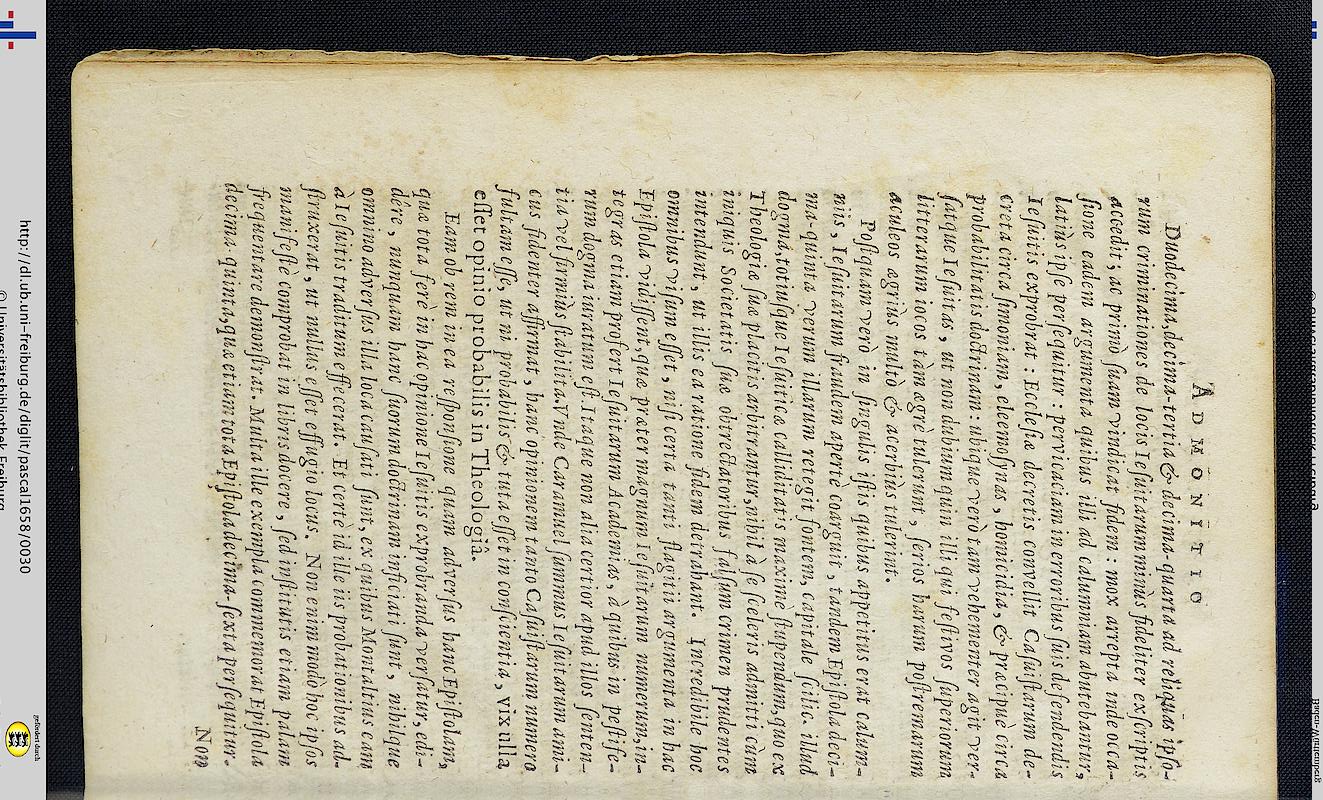 ADMONITIO
Duodecima, decima-tertia & decima-quarta ad reliquas ipso-
rum criminationes de locis Iesuitarum minùs fideliter exscriptis
accedit; ac primò suam vindicat fidem: mox arrepta inde occa-
sione eadem argumenta quibus illi ad calumniam abutebantur,
latiùs ipse persequitur: pervicaciam in erroribus suis defendendis
Iesuitis exprobrat: Ecclesiæ decretis convellit Casuistarum de-
creta circa simoniam, eleemosynas, homicidia, & præcipuè circa
probabilitatis doctrinam: ubique verò tam vehementer agit ver-
satque Iesuitas, ut non dubium quin illi qui festivos superiorum
litterarum iocos tàm ægrè tulerunt, serios harum postremarum
aculeos ægriùs multò & acerbiùs tulerint.
Postquam verò in singulis istis quibus appetitus erat calum-
niis, Iesuitarum fraudem apertè coarguit, tandem Epistola deci-
ma-quinta verum illarum retegit fontem, capitale scilic. illud
dogma, totiusque Iesuiticæ calliditatis maximè stupendum, quo ex
Theologiæ suæ placitis arbitrantur, nihil à se sceleris admitti cùm
iniquis Societatis suæ obtrectatoribus falsum crimen prudentes
intendunt, ut illis ea ratione fidem detrahant. Incredibile hoc
omnibus visum esset, nisi certa tanti flagitii argumenta in hac
Epistola vidissent, quæ præter magnum Iesuitarum numerum, in-
tegras etiam profert Iesuitarum Academias, à quibus in pestife-
rum dogma iuratum est. Itaque non alia certior apud illos senten-
tia vel firmiùs stabilita. Vnde Caramuel summus Iesuitarum ami-
cus fidenter affirmat, hanc opinionem tanto Casuistarum numero
fultam esse, ut ni probabilis & tuta esset in conscientia, vix ulla
esset opinio probabilis in Theologiâ.
Eam ob rem in ea responsione quam adversus hanc Epistolam,
quæ tota ferè in hac opinione Iesuitis exprobranda versatur, edi-
dêre, nunquam hanc suorum doctrinam inficiati sunt, nihilque
omnino adversùs illa loca caussati sunt, ex quibus Montaltius eam
à Iesuitis traditum effecerat. Et certè id ille iis probationibus ad-
struxerat, ut nullus esset effugio locus. Non enim modò hoc ipsos
manifestè comprobat in libris docere, sed institutis etiam palam
frequentare demonstrat. Multa ille exempla commemorat Epistola
decima-quinta, quæ etiam tota Epistola decima-sexta persequitur.
Non
http://dl.ub.uni-freiburg.de/diglit/pascal1658/0030
© Universitätsbibliothek Freiburg
gefördert durch